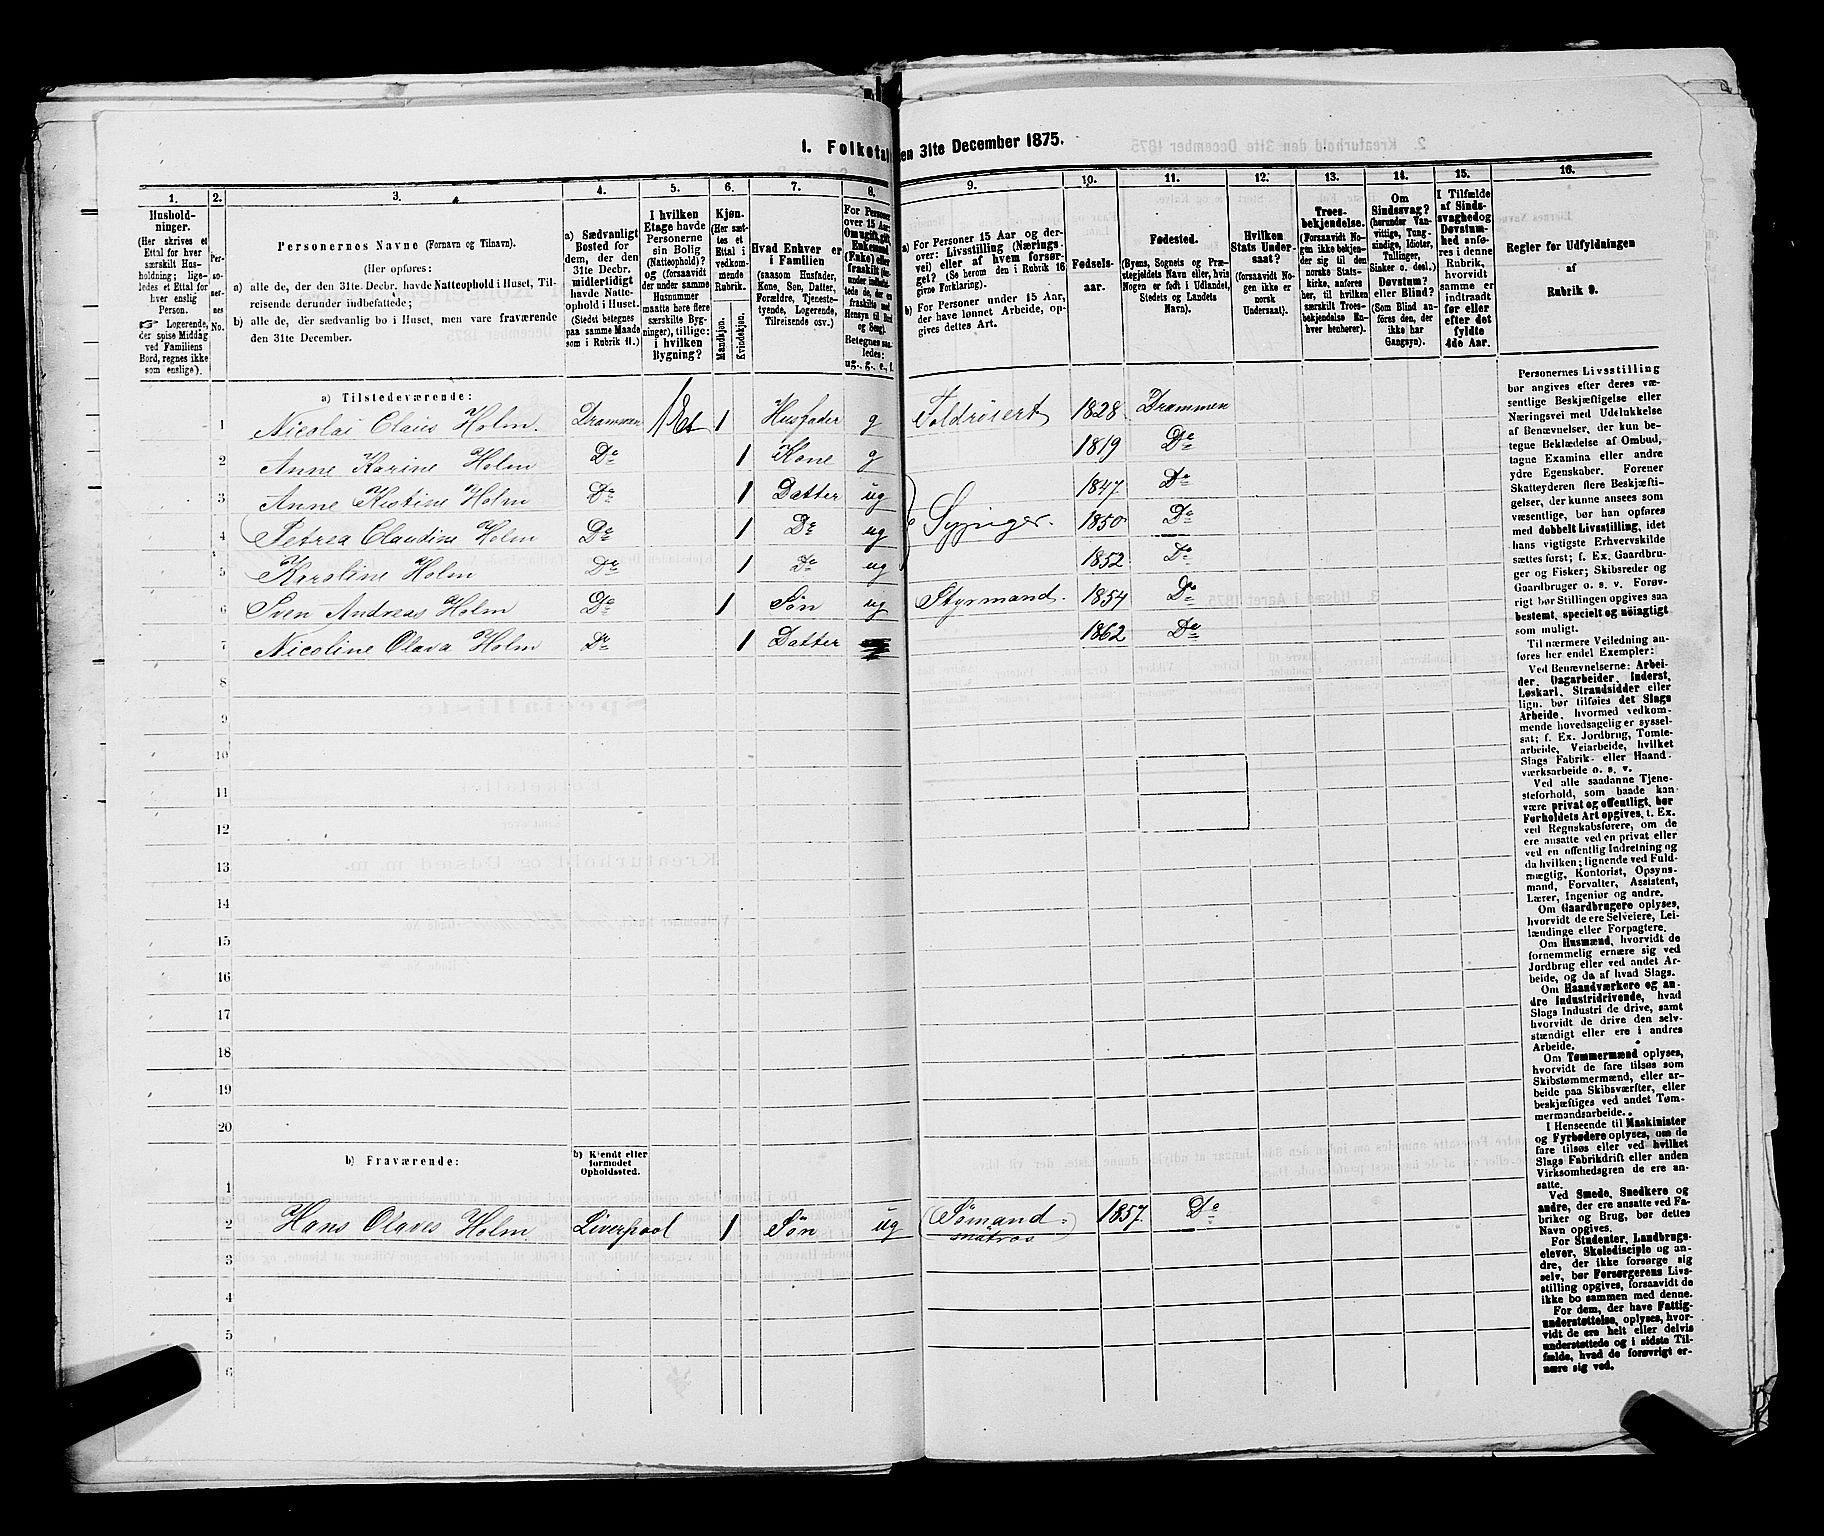 1. Folketal den 31te December 1875.
1.
2.
3.
4.
5.
6.
7.
8.
9.
10.
11.
12.
13.
14.
15.
16.
Hushold-
ninger.
(Her skrives et
Ettal for hver
særskilt Hus-
holdning; lige-
ledes et Ettal for
hver enslig
Person.
☞ Logerende,
der spise Middag
ved Familiens
Bord, regnes ikke
som enslige).
Per-
so-
ner-
nes
No.
Personernes Navne (Fornavn og Tilnavn).
(Her opføres:
a) alle de, der den 31te. Decbr. havde Natteophold i Huset, Til-
reisende derunder indbefattede;
b) alle de, der sædvanlig bo i Huset, men vare fraværende
den 31te December.
a) Sædvanligt
Bosted for
dem, der den
31te Decbr.
midlertidigt
havde Natte-
ophold i Huset.
(Stedet betegnes
paa samme Maade
som i Rubrik 11.)
I hvilken
Etage havde
Personerne
sin Bolig
(Natteophold)?
og (forsaavidt
der under samme
Husnummer
maatte høre flere
særskilte Byg-
ninger), tillige:
i hvilken
Bygning?
Kjøn.
(Her sæt-
tes et
Ettal i
vedkom-
mende
Rubrik.
Mandkjøn.
Kvindekjøn.
Hvad Enhver er
i Familien
(saasom Husfader,
Kone, Søn, Datter,
Forældre, Tjeneste-
tyende, Logerende,
Tilreisende osv.)
For Personer
over 15 Aar:
Om ugift, gift,
Enkemand
(Enke) eller
fraskilt
Hensyn til Bord
og Seng).
Betegnes saa-
ledes:
ug., g., e., f.
a) For Personer 15 Aar og der-
over: Livsstilling (Nærings-
vei) eller af hvem forsør-
get? (Se herom den i Rubrik 16
givne Forklaring).
b) For Personer under 15 Aar,
der have lønnet Arbeide, op-
gives dettes Art.
Fødsels-
aar.
Fødested.
(Byens, Sognets og Præ-
stegjeldets Navn eller, hvis
Nogen er født i Udlandet,
Stedets og Landets
Navn).
Hvilken
Stats Under-
saat?
(forsaavidt No-
gen ikke er
norsk
Undersaat).
Troes-
bekjendelse.
(Forsaavidt No-
gen ikke bekjen-
der sig til den
norske Stats-
kirke, anføres
her, til hvilken
særskilt Troes-
bekjendelse En-
hver henhører).
Om
Sindssvag?
(herunder Van-
vittige, Tung-
sindige, Idioter,
Tullinger,
Sinker o. desl.)
Døvstum?
eller Blind?
(Som Blind an-
føres den, der
ikke har
Gangsyn).
I Tilfælde
af Sinds-
svaghed og
Døvstum-
hed anfø-
res i denne
Rubrik,
hvorvidt
samme er
indtraadt
før eller
efter det
fyldte
4de Aar.
Regler for Udfyldningen
af
Rubrik 9.
a) Tilstedeværende:
1 Nicolai Claus Holm. Drammen 1 Et 1 Husfader g Toldrosert 1828 Drammen
2 Anne Karine Holm Do 1 Kone g 1819 Do
3 Anne Kistine Holm Do 1 Datter ug 1847 Do
4 Petrea Claudine Holm Do 1 Do ug Sypiger. 1850 Do
5 Karoline Holm Do 1 Do ug 1852 Do
6 Sven Andreas Holm Do 1 Søn ug Styrmand. 1854 Do
7 Nicoline Olava Holm Do 1 Datter 1862 Do
8
9
10
11
12
13
14
15
16
17
18
19
20
b) Fraværende:
b) Kjendt eller
formodet
Opholdssted.
1
2 Hans Olaves Holm. Liverpool 1 Søn ug (Sømand) 1857 Do
matros
3
4
5
6
Personernes Livsstilling
bør angives efter deres væ-
sentlige Beskjæftigelse eller
Næringsvei med Udelukkelse
af Benævnelser, der kun be-
tegne Beklædelse af Ombud,
tagne Examina eller andre
ydre Egenskaber. Forener
Skatteyderen flere Beskjæfti-
gelser, der kunne ansees som
væsentlige, bør han opføres
med dobbelt Livsstilling, idet
hans vigtigste Erhvervskilde
sættes først; f. Ex. Gaardbru-
ger og Fisker; Skibsreder og
Gaardbruger o. s. v. Forøv-
rigt bør Stillingen opgives saa
bestemt, specielt og nöiagtigt
som muligt.
Til nærmere Veiledning an-
føres her endel Exempler:
Ved Benævnelserne: Arbei-
der, Dagarbeider, Inderst,
Løskarl, Strandsidder eller
lign. bør tilføies det Slags
Arbeide, hvormed vedkom-
mende hovedsagelig er syssel-
sat; f. Ex. Jordbrug, Tomte-
arbeide, Veiarbeide, hvilket
Slags Fabrik- eller Haand-
værksarbeide o. s. v.
Ved alle saadanne Tjene-
steforhold, som baade kan
være privat og offentligt, bør
Forholdets Art opgives, t. Ex.
ved Regnskabsførere, om de
ere ansatte ved en privat eller
ved en offentlig Indretning og
da hvilken; lignende ved Fuld-
mægtig, Kontorist, Opsyns-
mand, Forvalter, Assistent,
Lærer, Ingeniør og andre.
Om Gaardbrugere oplyses,
hvorvidt de ere Selveiere, Lei-
lændinge eller Forpagtere.
Om Husmænd, hvorvidt de
fornemmelig ernære sig ved
Jordbrug eller ved andet Ar-
beide, og da af hvad Slags.
Om Haandværkere og an-
dre Industridrivende, hvad
Slags Industri de drive, samt
hvorvidt de drive den selv-
stændigt eller ere i andres
Arbeide.
Om Tømmermænd oplyses,
hvorvidt de fare tilsøs som
Skibstømmermænd, eller ar-
beide paa Skibsværfter, eller
beskjæftiges ved andet Tøm-
mermandsarbeide.
I Henseende til Maskinister
og Fyrbødere oplyses, om de
fare tilsøs eller ved hvilket
Slags Fabrikdrift eller anden
Virksomhedsgren de ere an-
satte.
Ved Smede, Snedkere og
andre, der ere ansatte ved Fa-
briker og Brug, bør dettes
Navn opgives.
For Studenter, Landbrugs-
elever, Skoledisciple og an-
dre, der ikke forsørge sig
selv, bør Forsørgerens Livs-
stilling opgives, forsaavidt de
ikke bo sammen med denne.
For dem, der have Fattig-
understøttelse, oplyses, hvor-
vidt de ere helt eller delvis
understøttede og i sidste Til-
fælde, hvad de forøvrigt er-
nære sig ved.